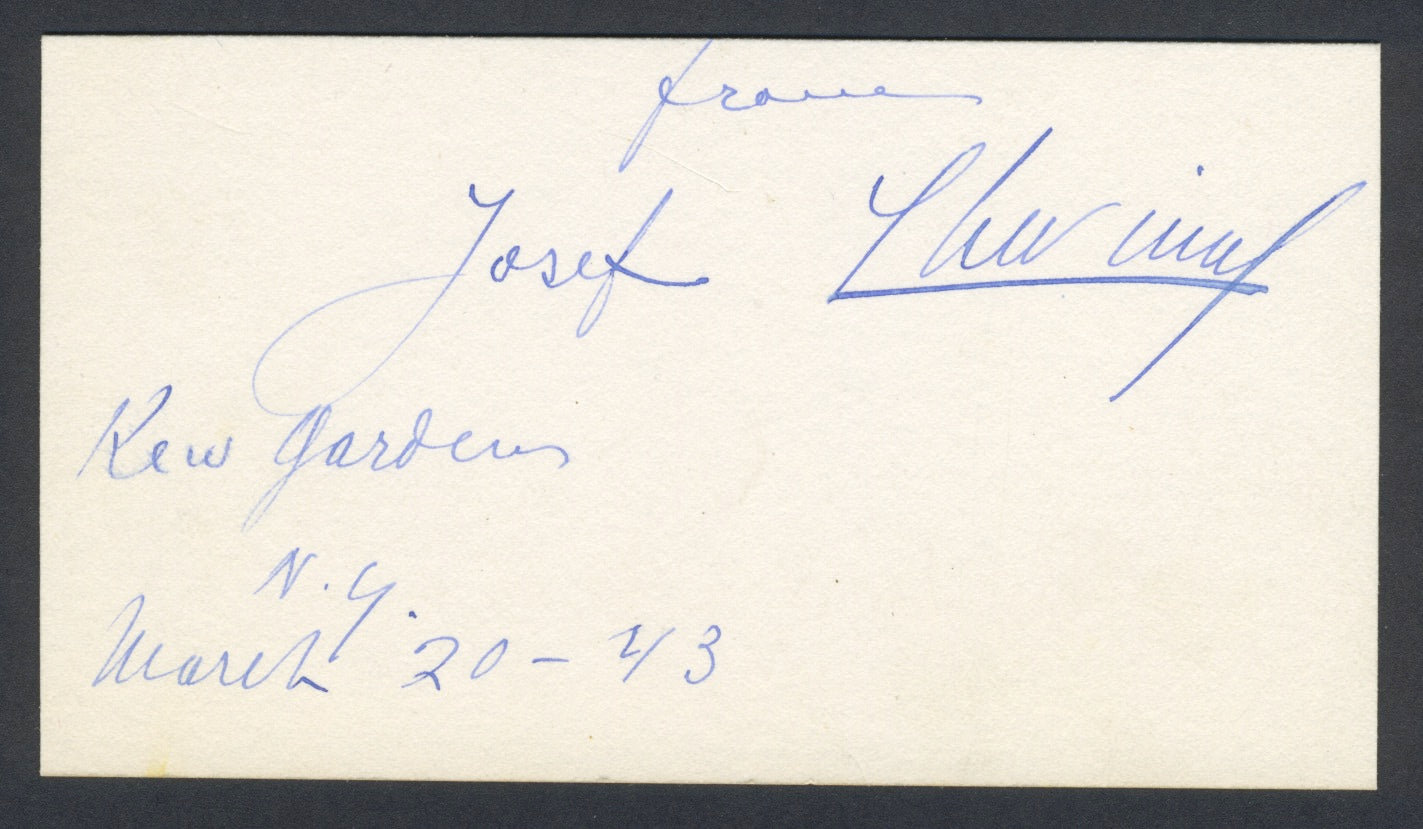 from
Josef Lhevinne
Kew Gardens
N.Y.
March 20 - 43